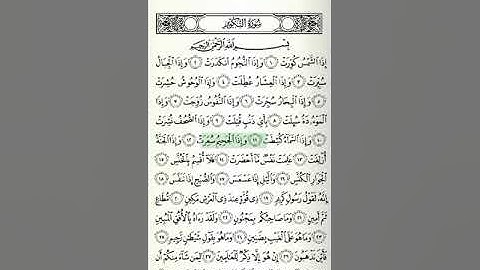 سُورَةُ التَّكْوِيرِ
بِسْمِ اللَّهِ الرَّحْمَٰنِ الرَّحِيمِ
إِذَا الشَّمْسُ كُوِّرَتْ ١ وَإِذَا النُّجُومُ انكَدَرَتْ ٢ وَإِذَا الْجِبَالُ
سُيِّرَتْ ٣ وَإِذَا الْعِشَارُ عُطِّلَتْ ٤ وَإِذَا الْوُحُوشُ حُشِرَتْ
٥ وَإِذَا الْبِحَارُ سُجِّرَتْ ٦ وَإِذَا النُّفُوسُ زُوِّجَتْ ٧ وَإِذَا
الْمَوْءُدَةُ سُئِلَتْ ٨ بِأَيِّ ذَنبٍ قُتِلَتْ ٩ وَإِذَا الصُّحُفُ نُشِرَتْ
١٠ وَإِذَا السَّمَاءُ كُشِطَتْ ١١ وَإِذَا الْجَحِيمُ سُعِّرَتْ ١٢ وَإِذَا الْجَنَّةُ
أُزْلِفَتْ ١٣ عَلِمَتْ نَفْسٌ مَّا أَحْضَرَتْ ١٤ فَلَا أُقْسِمُ بِالْخُنَّسِ ١٥
الْجَوَارِ الْكُنَّسِ ١٦ وَاللَّيْلِ إِذَا عَسْعَسَ ١٧ وَالصُّبْحِ إِذَا تَنَفَّسَ ١٨
إِنَّهُ لَقَوْلُ رَسُولٍ كَرِيمٍ ١٩ ذِي قُوَّةٍ عِندَ ذِي الْعَرْشِ مَكِينٍ ٢٠ مُّطَاعٍ
ثَمَّ أَمِينٍ ٢١ وَمَا صَاحِبُكُم بِمَجْنُونٍ ٢٢ وَلَقَدْ رَآهُ بِالْأُفُقِ الْمُبِينِ
٢٣ وَمَا هُوَ عَلَى الْغَيْبِ بِضَنِينٍ ٢٤ وَمَا هُوَ بِقَوْلِ شَيْطَٰنٍ رَّجِيمٍ ٢٥
فَأَيْنَ تَذْهَبُونَ ٢٦ إِنْ هُوَ إِلَّا ذِكْرٌ لِّلْعَٰلَمِينَ ٢٧ لِمَن شَاءَ مِنكُمْ أَن